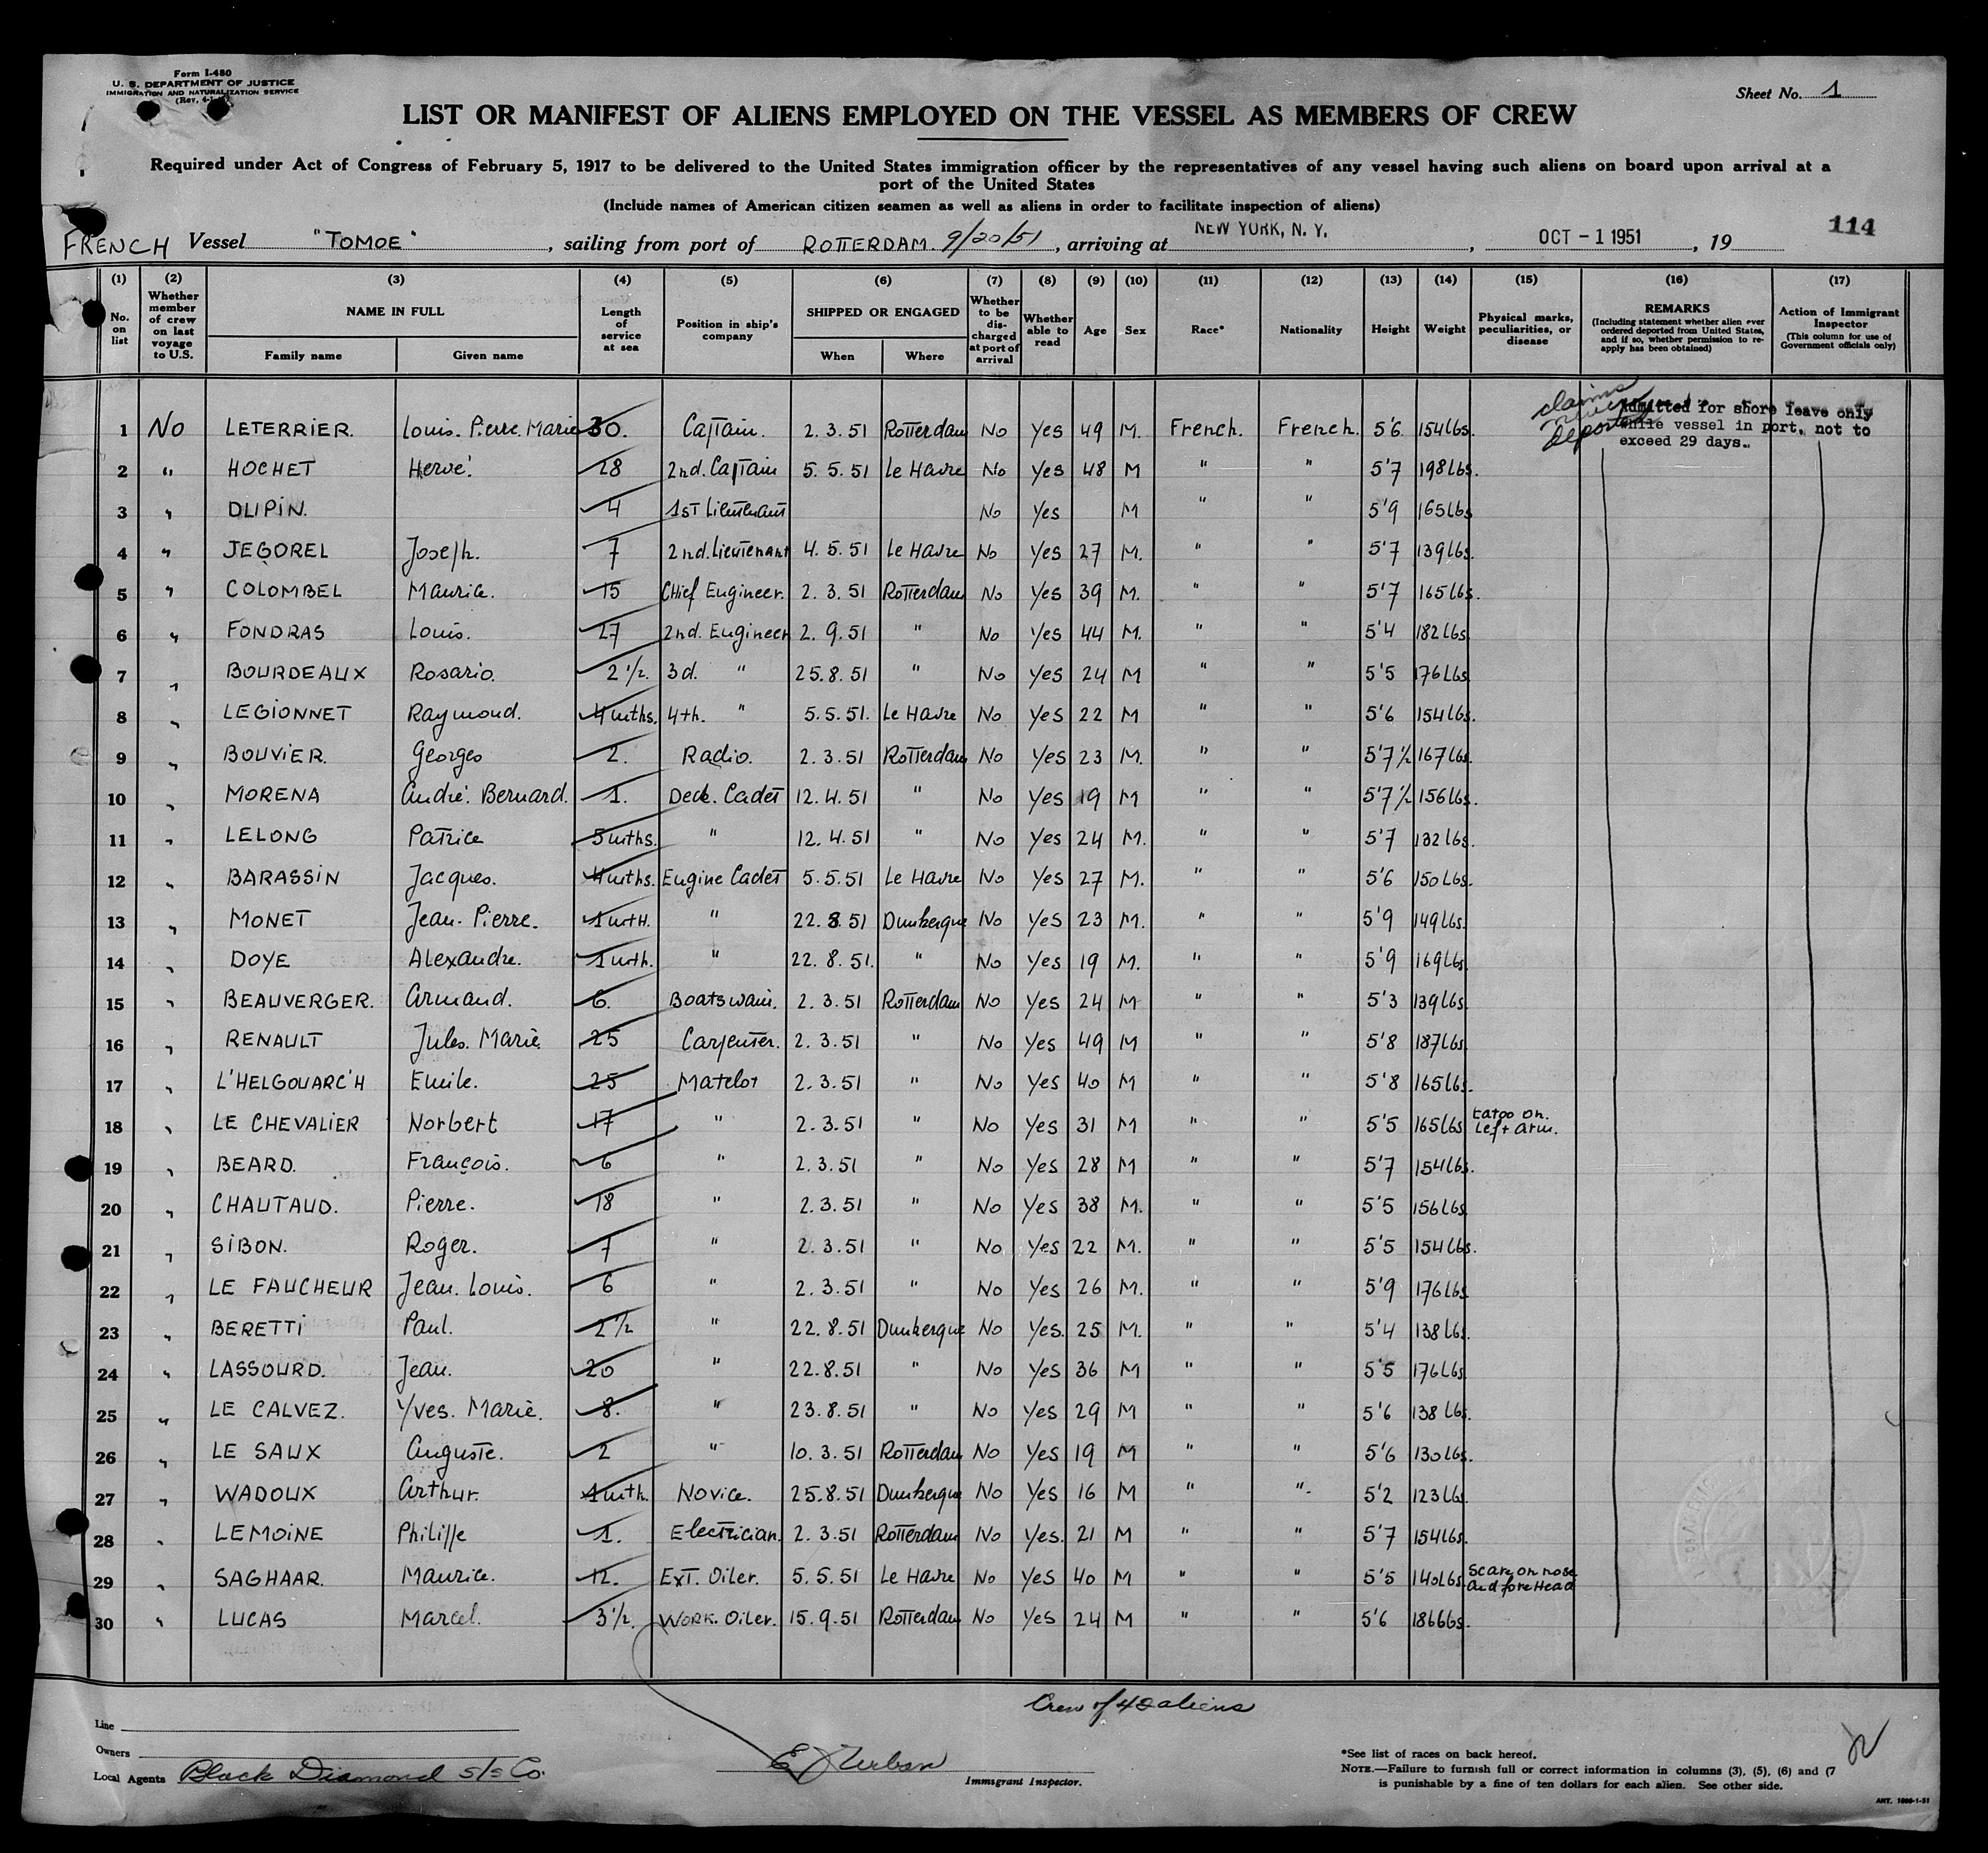 Form I-480
U. S. DEPARTMENT OF JUSTICE
IMMIGRATION AND NATURALIZATION SERVICE
(Rev.
Sheet No. 1
LIST OR MANIFEST OF ALIENS EMPLOYED ON THE VESSEL AS MEMBERS OF CREW
Required under Act of Congress of February 5, 1917 to be delivered to the United States immigration officer by the representatives of any vessel having such aliens on board upon arrival at a
port of the United States
(Include names of American citizen seamen as well as aliens in order to facilitate inspection of aliens)
114
FRENCH Vessel "TOMOE", sailing from port of ROTTERDAM. 9/20/51, arriving at NEW YORK, N. Y., OCT - 1 1951, 19
(1) (2) (3) (4) (5) (6) (7) (8) (9) (10) (11) (12) (13) (14) (15) (16) (17)
No. on list
Whether member of crew on last voyage to U.S.
NAME IN FULL
Family name Given name
Length of service at sea
Position in ship's company
SHIPPED OR ENGAGED
When Where
Whether to be discharged at port of arrival
Whether able to read
Age
Sex
Race*
Nationality
Height
Weight
Physical marks, peculiarities, or disease
REMARKS
(Including statement whether alien ever ordered deported from United States, and if so, whether permission to re-apply has been obtained)
Action of Immigrant Inspector
(This column for use of Government officials only)
claims never deported
Admitted for shore leave only
while vessel in port, not to
exceed 29 days.
1 No LETERRIER. Louis. Pierre. Marie 30. Captain. 2.3.51 Rotterdam No Yes 49 M. French. French. 5'6 154 lbs.
2 " HOCHET Hervé. 28 2nd. Captain 5.5.51 Le Havre No Yes 48 M " " 5'7 198 lbs.
3 " DUPIN. 4 1st Lieutenant No Yes M " " 5'9 165 lbs
4 " JEGOREL Joseph. 7 2nd. Lieutenant 4.5.51 Le Havre No Yes 27 M. " " 5'7 139 lbs.
5 " COLOMBEL Maurice. 15 Chief Engineer. 2.3.51 Rotterdam No Yes 39 M. " " 5'7 165 lbs.
6 " FONDRAS Louis. 27 2nd. Engineer 2.9.51 " No Yes 44 M. " " 5'4 182 lbs
7 " BOURDEAUX Rosario. 2 1/2. 3d. " 25.8.51 " No Yes 24 M " " 5'5 176 lbs
8 " LEGIONNET Raymond. 4 mths. 4th. " 5.5.51. Le Havre No Yes 22 M " " 5'6 154 lbs.
9 " BOUVIER. Georges 2. Radio. 2.3.51 Rotterdam No Yes 23 M. " " 5'7 1/2 167 lbs.
10 " MORENA André. Bernard. 1. Deck. Cadet 12.4.51 " No Yes 19 M " " 5'7 1/2 156 lbs.
11 " LELONG Patrice 5 mths. " 12.4.51 " No Yes 24 M. " " 5'7 132 lbs.
12 " BARASSIN Jacques. 4 mths. Engine Cadet 5.5.51 Le Havre No Yes 27 M. " " 5'6 150 lbs.
13 " MONET Jean. Pierre. 1 mth. " 22.8.51 Dunkerque No Yes 23 M. " " 5'9 149 lbs.
14 " DOYE Alexandre. 1 mth. " 22.8.51. " No Yes 19 M. " " 5'9 169 lbs
15 " BEAUVERGER. Armand. 6. Boatswain. 2.3.51 Rotterdam No Yes 24 M " " 5'3 139 lbs.
16 " RENAULT Jules. Marie. 25 Carpenter. 2.3.51 " No Yes 49 M " " 5'8 187 lbs
17 " L'HELGOUARC'H Emile. 25 Matelot 2.3.51 " No Yes 40 M " " 5'8 165 lbs.
18 " LE CHEVALIER Norbert 17 " 2.3.51 " No Yes 31 M " " 5'5 165 lbs tatoo on. left arm.
19 " BEARD. François. 6 " 2.3.51 " No Yes 28 M " " 5'7 154 lbs.
20 " CHAUTAUD. Pierre. 18 " 2.3.51 " No Yes 38 M. " " 5'5 156 lbs
21 " SIBON. Roger. 7 " 2.3.51 " No Yes 22 M. " " 5'5 154 lbs.
22 " LE FAUCHEUR Jean. Louis. 6 " 2.3.51 " No Yes 26 M. " " 5'9 176 lbs
23 " BERETTI Paul. 2 1/2 " 22.8.51 Dunkerque No Yes. 25 M. " " 5'4 138 lbs.
24 " LASSOURD. Jean. 20 " 22.8.51 " No Yes 36 M " " 5'5 176 lbs
25 " LE CALVEZ. Yves. Marie. 8. " 23.8.51 " No Yes 29 M " " 5'6 138 lbs.
26 " LE SAUX Auguste. 2 " 10.3.51 Rotterdam No Yes 19 M " " 5'6 130 lbs.
27 " WADOUX Arthur. 1 mth. Novice. 25.8.51 Dunkerque No Yes 16 M " " 5'2 123 lbs.
28 " LEMOINE Philippe 1. Electrician. 2.3.51 Rotterdam No Yes. 21 M " " 5'7 154 lbs.
29 " SAGHAAR. Maurice. 12. Ext. Oiler. 5.5.51 Le Havre No Yes 40 M " " 5'5 140 lbs Scare on nose and forehead
30 " LUCAS Marcel. 3 1/2. Work. Oiler. 15.9.51 Rotterdam No Yes 24 M " " 5'6 186 lbs.
Crew of 42 aliens
Line
Owners
Local Agents Black Diamond S/S Co.
E J Urban
Immigrant Inspector.
*See list of races on back hereof.
NOTE.—Failure to furnish full or correct information in columns (3), (5), (6) and (7
is punishable by a fine of ten dollars for each alien. See other side.